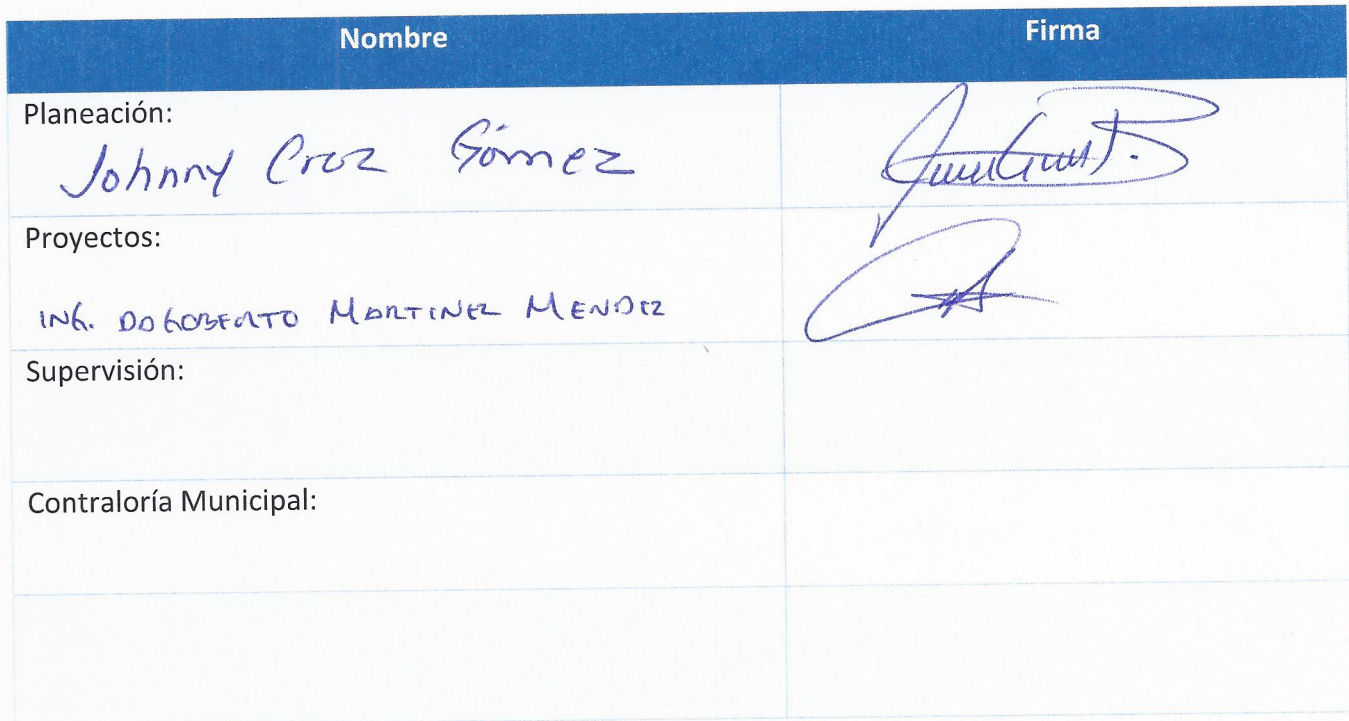 Nombre Firma
Planeación:
Johnny Cruz Gómez
Proyectos:
ING. DAGOBERTO MARTINEZ MENDEZ
Supervisión:
Contraloría Municipal: